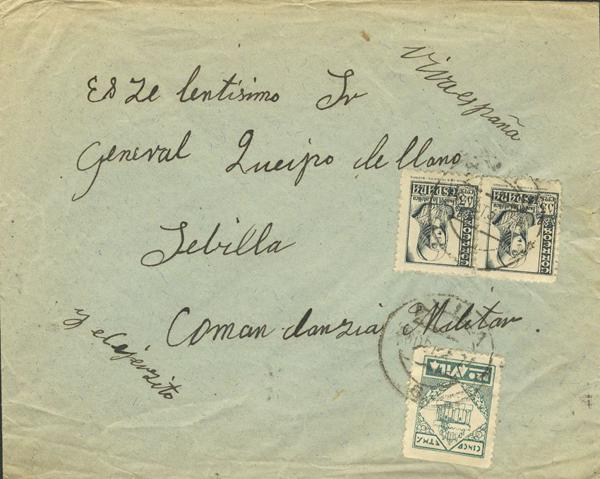 Viva españa
Es Ze lentisimo Sr
General Queipo de llano
Sebilla
Coman danzia Militar.
y el ejerzito
CORREOS
ESPAÑA
CORREOS
ESPAÑA
AVILA